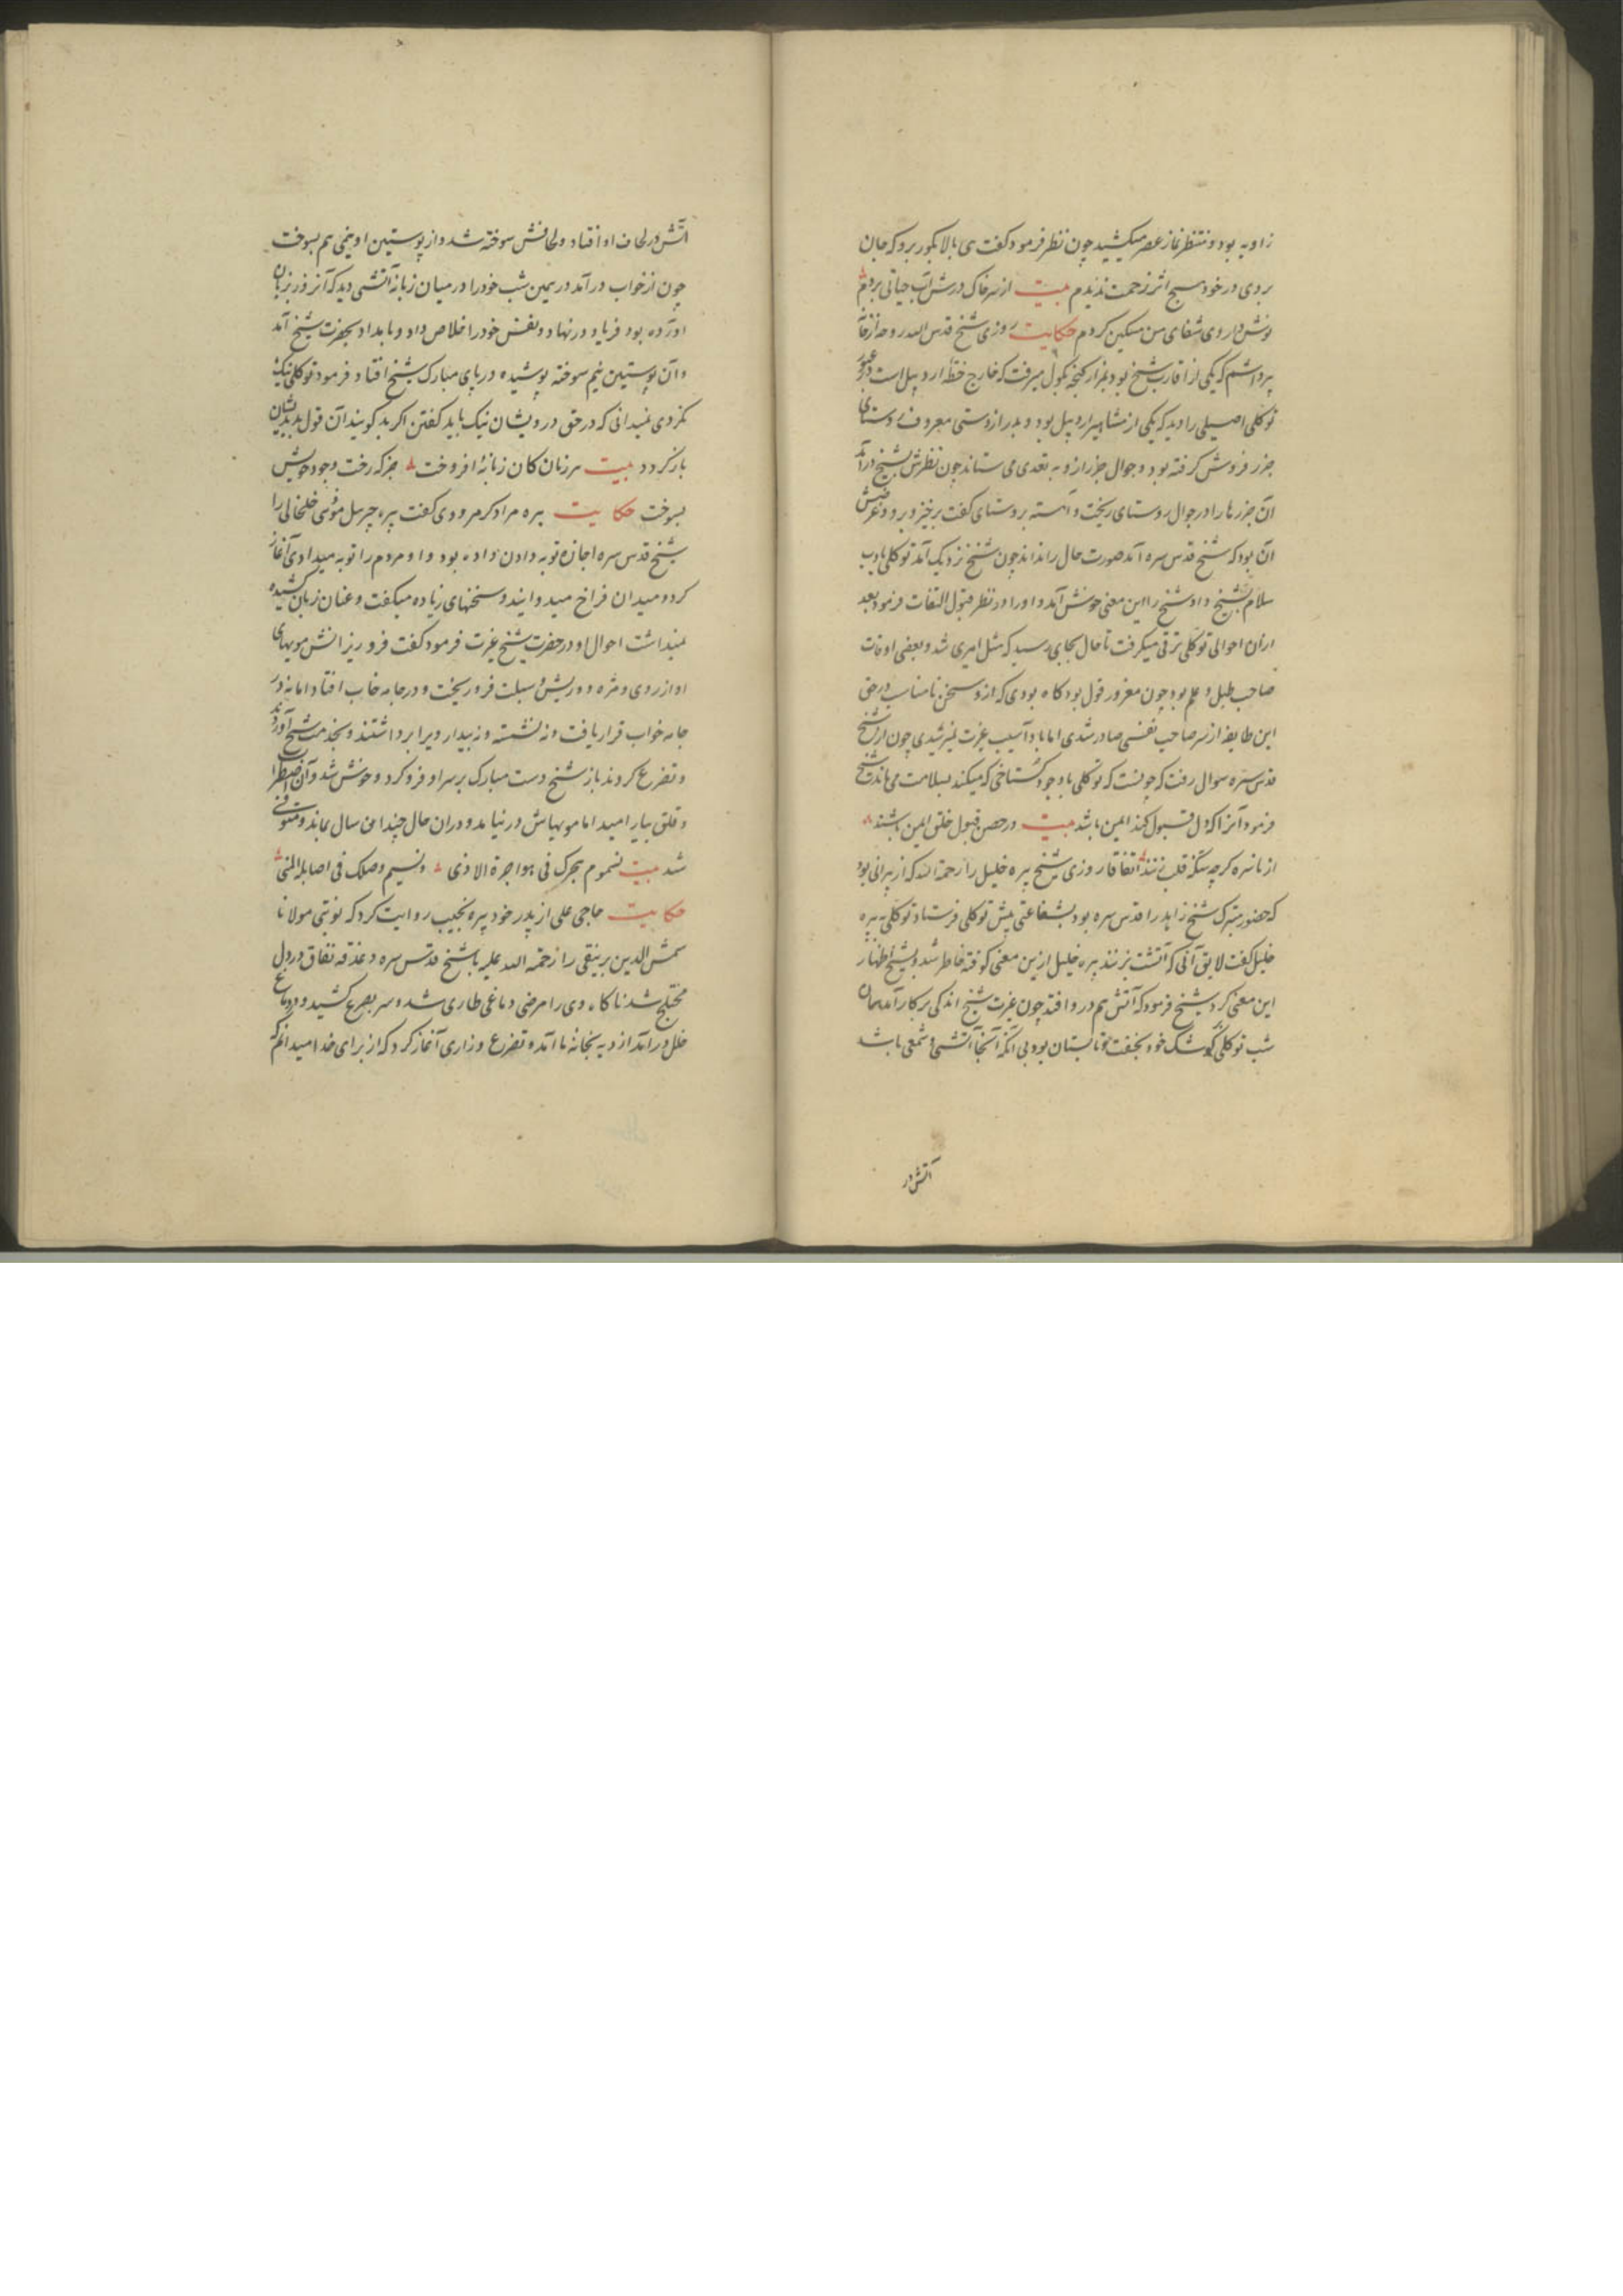 زاویه بود و منتظر نماز عصر میکشید چون نظر فرمود کفت ی بالا بکور برو که جان
بردی در خود هیچ اثر زحمت ندیدم بیت از سر خاک درش آب حیاتی بردم
نوش داروی شفای من مسکین کردم حکایت روزی شیخ قدس الله روحه از خانه
پرداشم که یکی از اقارب شیخ بود بمزار کنجه بکول میرفت که خارج خطه اردبیل است در عبور
توکلی اصیلی را دید که یکی از مشاهیر اردبیل بود و بدراز دستی معروف روستای
جزر فروش کرفته بود و جوال جزر ازو به تعدی می ستاند چون نظرش بشیخ درآمد
آن جزرها را در جوال روستای ریخت و آهسته بروستای کفت برخیز و برو و غرضش
آن بود که شیخ قدس سره آن صورت حال را نداند چون شیخ نزدیک آمد توکلی بادب
سلام بشیخ داد شیخ را این معنی خوش آمد و او را در نظر قبول التفات فرمود بعد
ازان احوالی توکلی ترقی میکرفت تا حال بجای رسید که مثل امیری شد و بعضی اوقات
صاحب طبل و علم بود چون مغرور قول بود کاه بودی که ازو سخن نامناسب در حق
این طایفه از سر صاحب نفسی صادر شدی اما با او آسیب غیرت نمیرسیدی چون از شیخ
قدس سره سوال رفت که چونست که توکلی با وجود کستاخی که میکند بسلامت می ماند شیخ
فرمود آنرا که دل قبول کند ایمن باشد بیت در حصن قبول خلق ایمن باشند
از نایره کرچه سنگ قلب زنند اتفاقا روزی شیخ پیره خلیل را رحمة الله که از پیرانی بود
که حضور متبرک شیخ زاهد را قدس سره بود بشفاعتی پیش توکلی فرستاد توکلی به پیره
خلیل کفت لایق آنی که آتشت بزنند پیره خلیل ازین معنی کوفته خاطر شد و بشیخ اظهار
این معنی کرد شیخ فرمود که آتش هم در و افتد چون غیرت شیخ اندکی بر کار آمد همان
شب توکلی بکوشک خود بخفت و تابستان بود بی آنکه آنجا آتشی و شمعی باشد
آتش در
آتش در لحاف او افتاد و لحافش سوخته شد و از پوستین او نیمی هم بسوخت
چون از خواب درآمد در همین شب خود را در میان زبانه آتشی دید که آنرا زبان
آورده بود فریاد در نهاد و نفس خود را خلاص داد و بامداد بحضرت شیخ آمد
و آن پوستین نیم سوخته پوشیده در پای مبارک شیخ افتاد فرمود توکلی نیک
نکردی نمیدانی که در حق درویشان نیک باید کفتن اکر بد کویند آن قول بد بدیشان
بازکردد بیت هر زبان کان زبانۀ افروخت جز که رخت وجود خویش
بسوخت حکایت پیره مراد کرمرودی کفت پیره جبرئیل مؤمنی خلخالی را
شیخ قدس سره اجازه توبه دادن داده بود و او مردم را توبه میدادی آغاز
کرد و میدان فراخ میدوانید و سخنهای زیاده میکفت و عنان زبان کشیده
نمیداشت احوال او در حضرت شیخ غیرت فرمود کفت فرو ریزانش مویهای
او از روی و مژه و ریش و سبلت فرو ریخت و در جامه خواب افتاد اما نه در
جامه خواب قرار یافت و نه نشسته و نه بیدار ویرا برداشتند و بخدمت شیخ آوردند
و تضرع کردند باز شیخ دست مبارک بر سر او فرو کرد و خوش شد و آن اضطراب
و قلق بیارامید اما مویهاش در نیامد و دران حال چندان سال بماند و متوفی
شد بیت سموم هجرک فی هواجرة الاذی ونسیم وصلک فی اصابلة المنی
حکایت حاجی علی از پدر خود پیره نجیب روایت کرد که نوبتی مولانا
شمس الدین برنیقی را رحمة الله علیه با شیخ قدس سره دغدغه نفاق در دل
مختلج شد ناکاه وی را مرضی دماغی طاری شد و سر بصرع کشید و در دماغ
خلل درآمد از دیه بخانه ما آمد و تضرع و زاری آغاز کرد که از برای خدا میدانم که